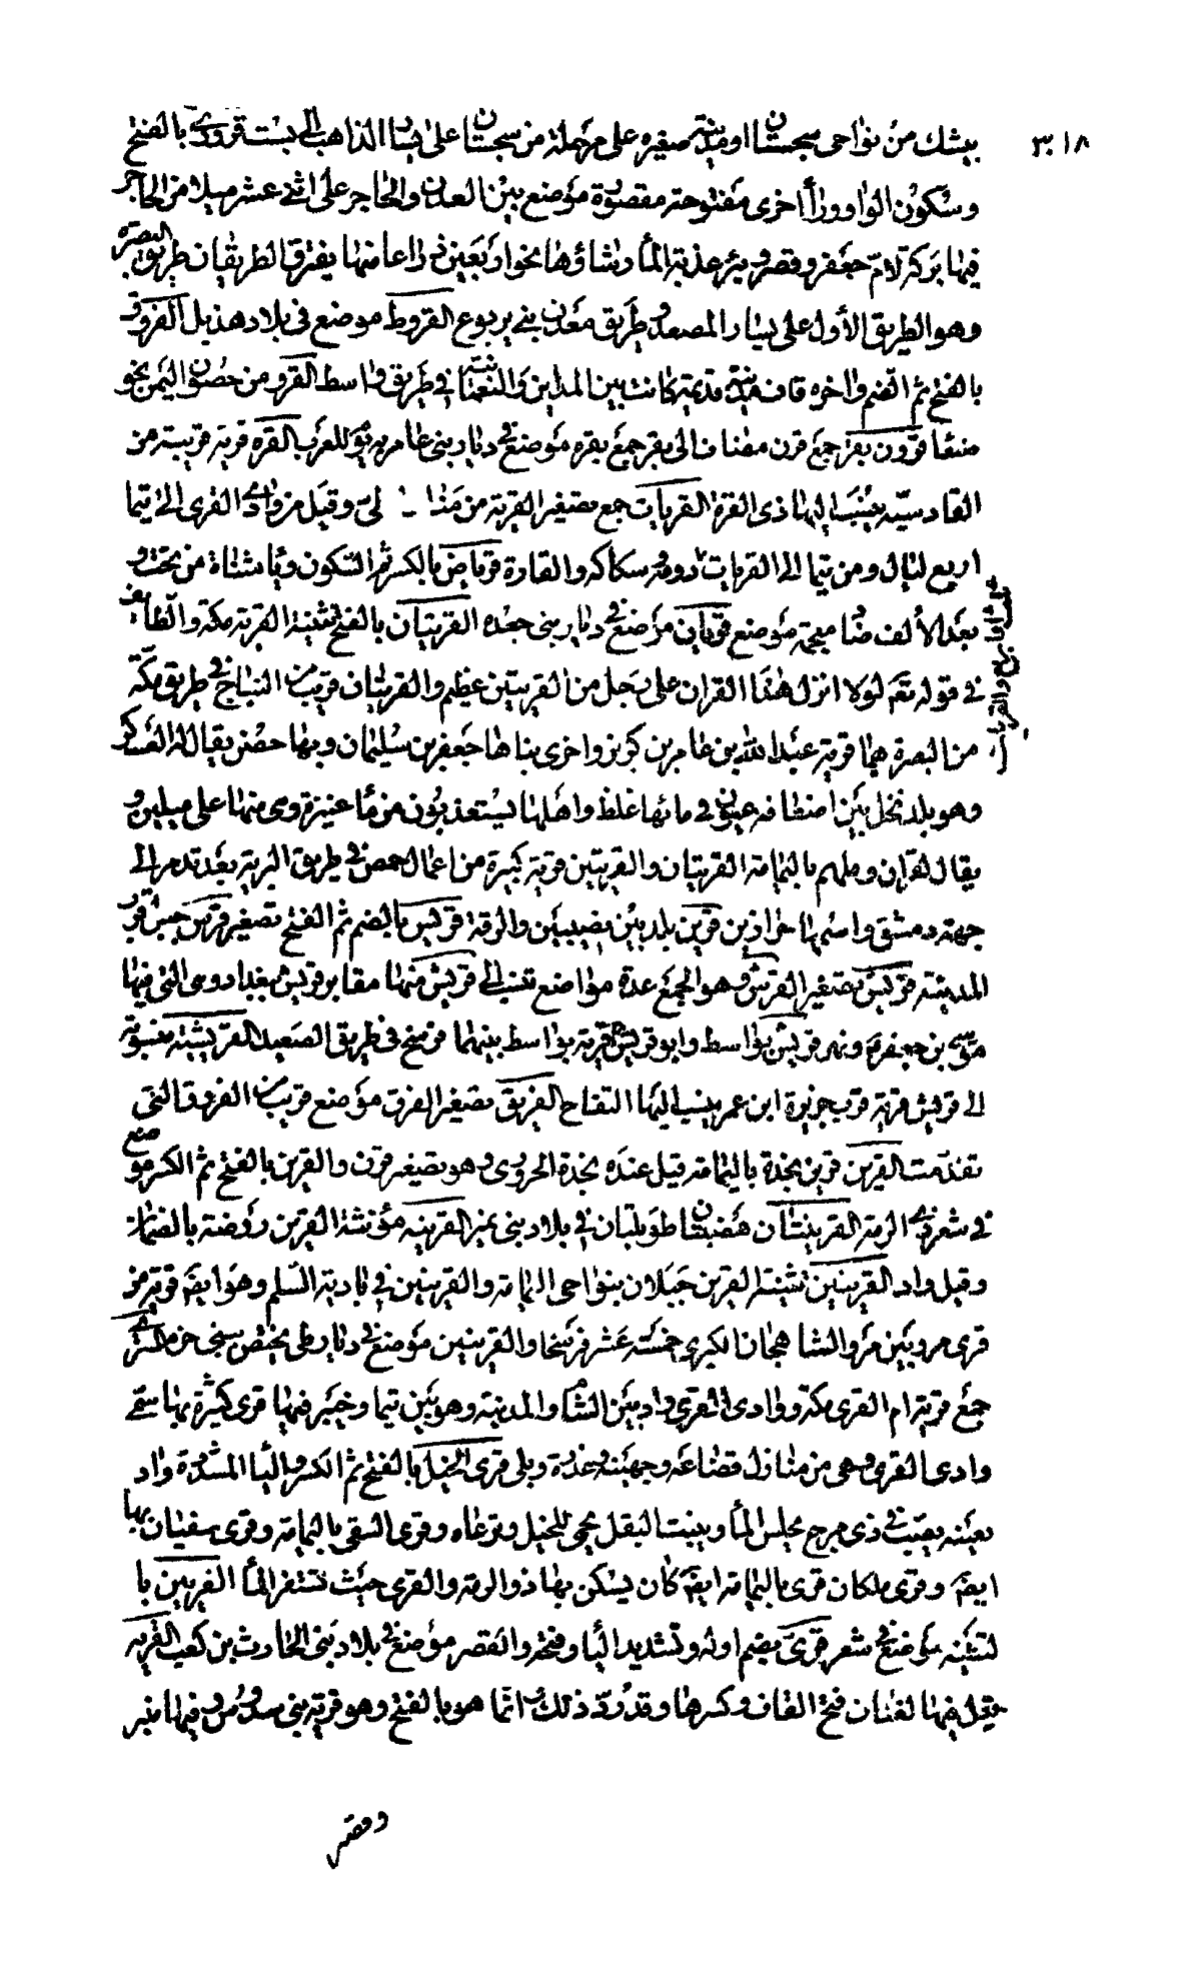 ٣٠١٨
بيشك من نواحى سجستان او مدينة صغيره على مرحلة من سجستان على يسار الذاهب الى بست قرورى بالفتح
وسكون الواو ورأ اخرى مفتوحة مقصورة موضع بين المعدن والحاجر على اثنى عشر ميلا من الحاجر
فيها بركة لام جعفر وقصر وبئر عذبة المأ رشاؤها نحو اربعين ذراعا منها يفترق الطريقان طريق البصره
وهو الطريق الأول على يسار المصعد وطريق معدن بنى يربوع القروط موضع فى بلاد هذيل القروق
بالفتح ثم الضم واخره قاف مدينة قديمة كانت بين المداين والنعمانية فى طريق واسط القرو من حصون اليمن نحو
صنعا قرون بقر جمع قرن مضاف الى بقر جمع بقره موضع فى ديار بنى عامر به يوم للعرب القره قرية قريبة من
القادسيه ينسب اليها ذى القرة القريات جمع تصغير القرية من منا لى وقيل من وادى القرى الى تيما
اربع ليال ومن تيما الى القريات دومه سكاكه والقارة قرياض بالكسر ثم السكون ويا مثناة من تحت و
بعد الألف ضا معجمة موضع قريان موضع فى ديار بنى جعده القريتان بالفتح تثنية القرية مكة والطايف
فى قوله تعه لولا انزل هذا القران على رجل من القريتين عظيم والقريتان قريب من النباج فى طريق مكة
من البصرة هما قرية عبد الله بن عامر بن كريز واخرى بناها جعفر بن سليمان وبها حصن يقال له العسكر
وهو بلد نخل بين اضعافه عيون فى مائها غلظ واهلها يستعذبون من مأ عنيزة وهى منها على ميلين و
يقال لقران وملهم باليمامة القريتان والقريتين قرية كبيرة من اعمال حمص فى طريق البرية بعد تدمر الى
جهة دمشق واسمها حوارين قرين بلد بين نصيبين والرقة قريس بالضم ثم الفتح تصغير قرس جبل قرب
المدينة قريش تصغير القرش وهو الجمع عدة مواضع تنسب الى قريش منها مقابر قريش ببغداد وهى التى فيها
موسى بن جعفر ونهر قريش بواسط وابو قريش قرية بواسط بينهما فرسخ فى طريق الصعيد القريشية منسوبة
الى قريش قرية قرب جزيرة ابن عمر ينسب اليها التفاح القريق تصغير الفرق موضع قريب من القروق التى
تقدمت القرين قرين نجدة باليمامة قتل عنده نجدة الحرورى وهو تصغير قرن والقرين بالفتح ثم الكسر موضع
فى شعر ذى الرمة القرينتان هضبتان طويلتان فى بلاد بنى نمير القرينه مؤنثة القرين روضة بالصمان
وقيل واد القرينين تثنية القرين جبلان بنواحى اليمامة والقرينين فى بادية الشام وهو ايضه قرية من
قرى مرو بين مرو الشاهجان الكبرى خمسة عشر فرسخا والقرينين موضع فى ديار طى يختص ببنى جرم القرى
جمع قرية ام القرى مكة ووادى القرى واد بين الشام والمدينة وهو بين تيما وخيبر فيها قرى كثيرة بها سمى
وادى القرى وهى من منازل قضاعه وجهينه وعذرة وبلى قرى الخيل بالفتح ثم الكسر واليا المشددة واد
بعينه يصب فى ذى مرج يحبس المأ وينبت البقل يحمى للخيل وترعاه وقرى السقى باليمامة وقرى سفيان بها
ايضه وقرى ملكان قرى باليمامة ايضه كان يسكن بها ذو الرمه والقرى حيث تستقر المأ القريين با
لتثنيه موضع فى شعر قرى بضم اوله وتشديد اليا وفتحه والقصر موضع فى بلاد بنى الحارث بن كعب القريه
قيل فيها لغتان فتح القاف وكسرها وقد ردّ ذلك انما هو بالفتح وهو قرية بنى سدوس فيها منبر
وقصر